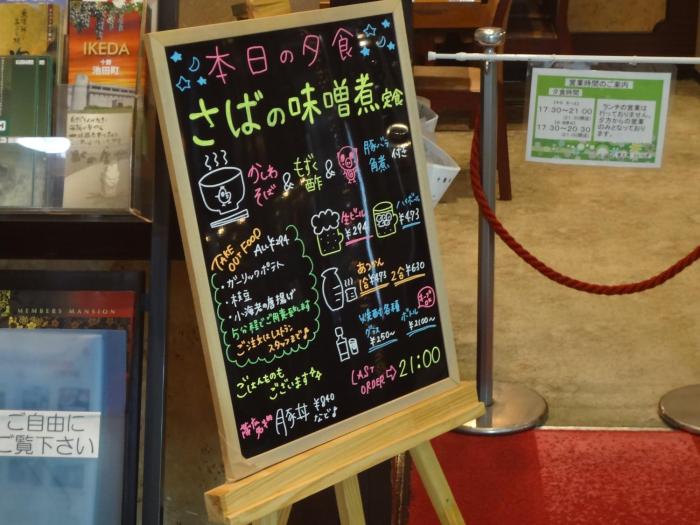 IKEDA
十勝
池田町
本日の夕食
さばの味噌煮定食
かしわ
そば
&
もずく
酢
&
豚バラ
角煮
付き
生ビール
¥294
ハイボール
¥473
TAKE
OUT FOOD
ALL¥294
・ガーリックポテト
・枝豆
・小海老の唐揚げ
5分程でご用意致します
ご注文はレストラン
スタッフまで♪
あつかん
1合¥473
2合¥630
焼酎各種
グラス
¥250〜
ボトル
¥2100〜
ごはんものも
ございます
LAST
ORDER⇨21:00
帯広名物
豚丼
¥840
など♪
営業時間のご案内
夕食時間
17:30~21:00
17:30~20:30
ランチの営業は
行っておりません。
夕方からの営業
のみとなっており
ます。
MEMBERS MANSION
ご自由に
ご覧下さい